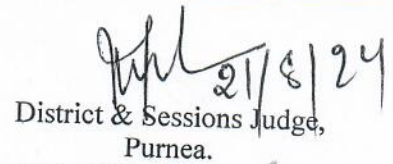 21/8/24
District & Sessions Judge,
Purnea.